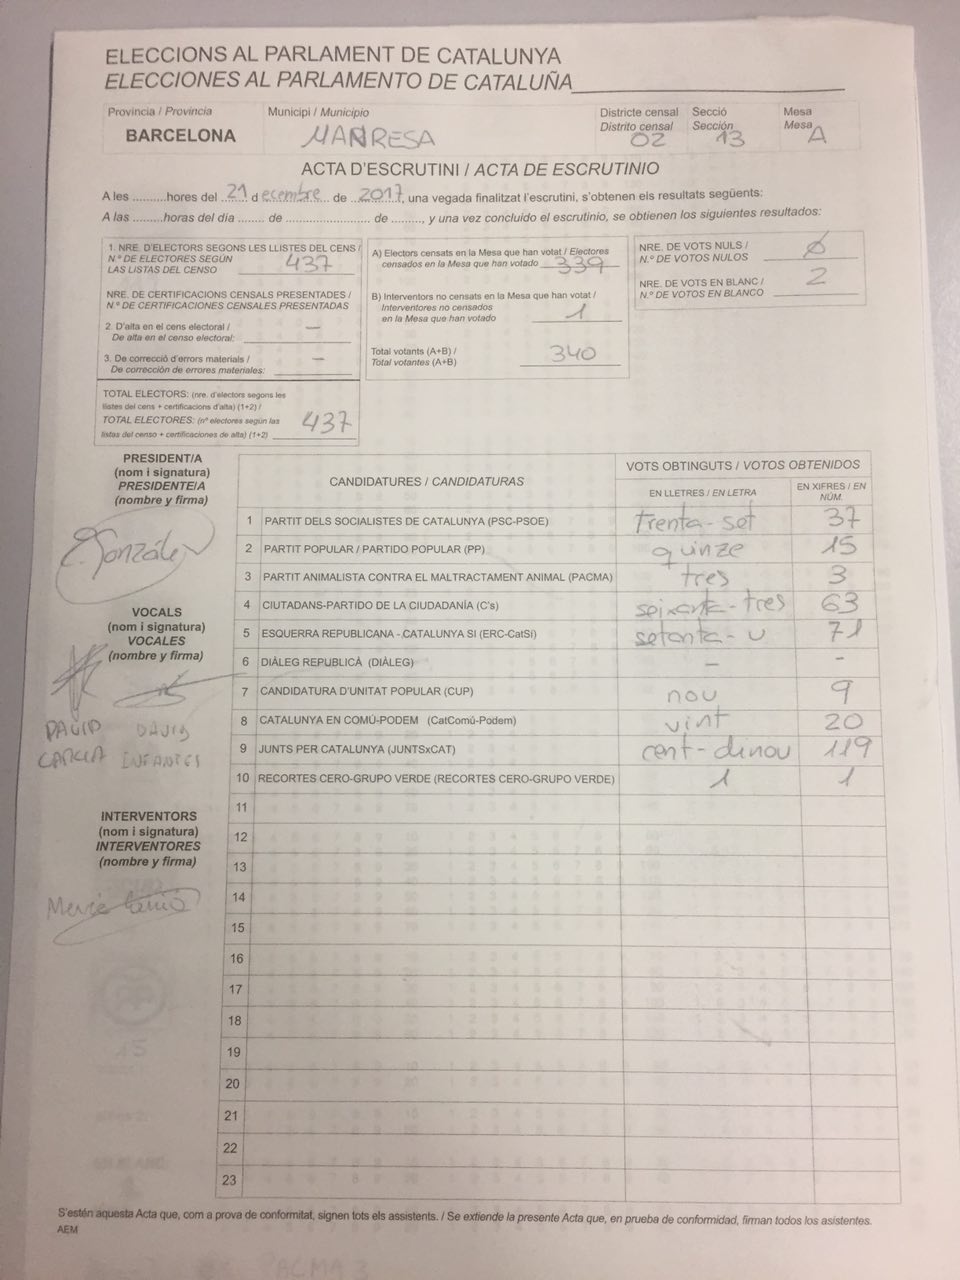 ELECCIONS AL PARLAMENT DE CATALUNYA
ELECCIONES AL PARLAMENTO DE CATALUÑA
Província / Provincia
BARCELONA
Municipi / Municipio
MANRESA
Districte censal
Distrito censal
02
Secció
Sección
13
Mesa
Mesa
A
ACTA D'ESCRUTINI / ACTA DE ESCRUTINIO
A les ..........hores del 21 d ecembre de 2017, una vegada finalitzat l'escrutini, s'obtenen els resultats següents:
A las .........horas del día ....... de ..................... de ........, y una vez concluido el escrutinio, se obtienen los siguientes resultados:
1. NRE. D'ELECTORS SEGONS LES LLISTES DEL CENS /
N.º DE ELECTORES SEGÚN
LAS LISTAS DEL CENSO
437
NRE. DE CERTIFICACIONS CENSALS PRESENTADES /
N.º DE CERTIFICACIONES CENSALES PRESENTADAS
2. D'alta en el cens electoral / –
De alta en el censo electoral:
3. De correcció d'errors materials / –
De corrección de errores materiales:
TOTAL ELECTORS: (nre. d'electors segons les
llistes del cens + certificacions d'alta) (1+2) /
TOTAL ELECTORES: (nº electores según las
listas del censo + certificaciones de alta) (1+2)
437
A) Electors censats en la Mesa que han votat / Electores
censados en la Mesa que han votado 339
B) Interventors no censats en la Mesa que han votat /
Interventores no censados
en la Mesa que han votado 1
Total votants (A+B) /
Total votantes (A+B)
340
NRE. DE VOTS NULS /
N.º DE VOTOS NULOS
Ø
NRE. DE VOTS EN BLANC /
N.º DE VOTOS EN BLANCO
2
PRESIDENT/A
(nom i signatura)
PRESIDENTE/A
(nombre y firma)
E. González
VOCALS
(nom i signatura)
VOCALES
(nombre y firma)
DAVID DAVID
GARCIA INFANTES
INTERVENTORS
(nom i signatura)
INTERVENTORES
(nombre y firma)
CANDIDATURES / CANDIDATURAS
VOTS OBTINGUTS / VOTOS OBTENIDOS
EN LLETRES / EN LETRA
EN XIFRES / EN
NÚM.
1 PARTIT DELS SOCIALISTES DE CATALUNYA (PSC-PSOE) trenta-set 37
2 PARTIT POPULAR / PARTIDO POPULAR (PP) quinze 15
3 PARTIT ANIMALISTA CONTRA EL MALTRACTAMENT ANIMAL (PACMA) tres 3
4 CIUTADANS-PARTIDO DE LA CIUDADANÍA (C's) seixanta-tres 63
5 ESQUERRA REPUBLICANA - CATALUNYA SI (ERC-CatSí) setanta-u 71
6 DIÀLEG REPUBLICÀ (DIÀLEG) – –
7 CANDIDATURA D'UNITAT POPULAR (CUP) nou 9
8 CATALUNYA EN COMÚ-PODEM (CatComú-Podem) vint 20
9 JUNTS PER CATALUNYA (JUNTSxCAT) cent-dinou 119
10 RECORTES CERO-GRUPO VERDE (RECORTES CERO-GRUPO VERDE) 1 1
11
12
13
14
15
16
17
18
19
20
21
22
23
S'estén aquesta Acta que, com a prova de conformitat, signen tots els assistents. / Se extiende la presente Acta que, en prueba de conformidad, firman todos los asistentes.
AEM